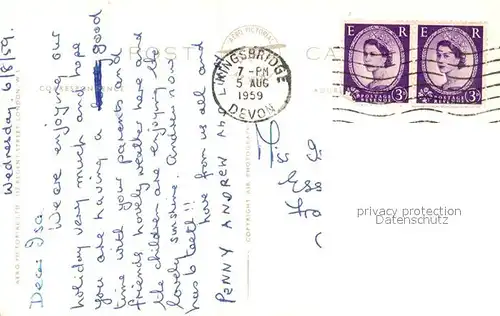 Wednesday 6/8/59.
Dear Isa.
We are enjoying our
holiday very much and hope
you are having a good
time with your parents and
friends. Lovely weather here and
the children are enjoying the
lovely sunshine. Andrew now
has 6 teeth!!
Love from us all and
PENNY ANDREW AND
POST CA
CORRESPONDENCE
AERO PICTORIAL
COPYRIGHT AIR PHOTOGRAPH
KINGSBRIDGE
7-PM
5 AUG
1959
DEVON
E R
POSTAGE REVENUE
3D
E R
POSTAGE REVENUE
3D
Ess
privacy protection
Datenschutz